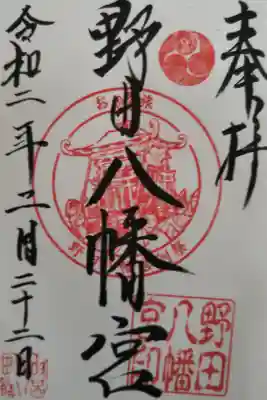 奉拝
野田八幡宮
令和二年二月二十二日
野田
八幡
宮印